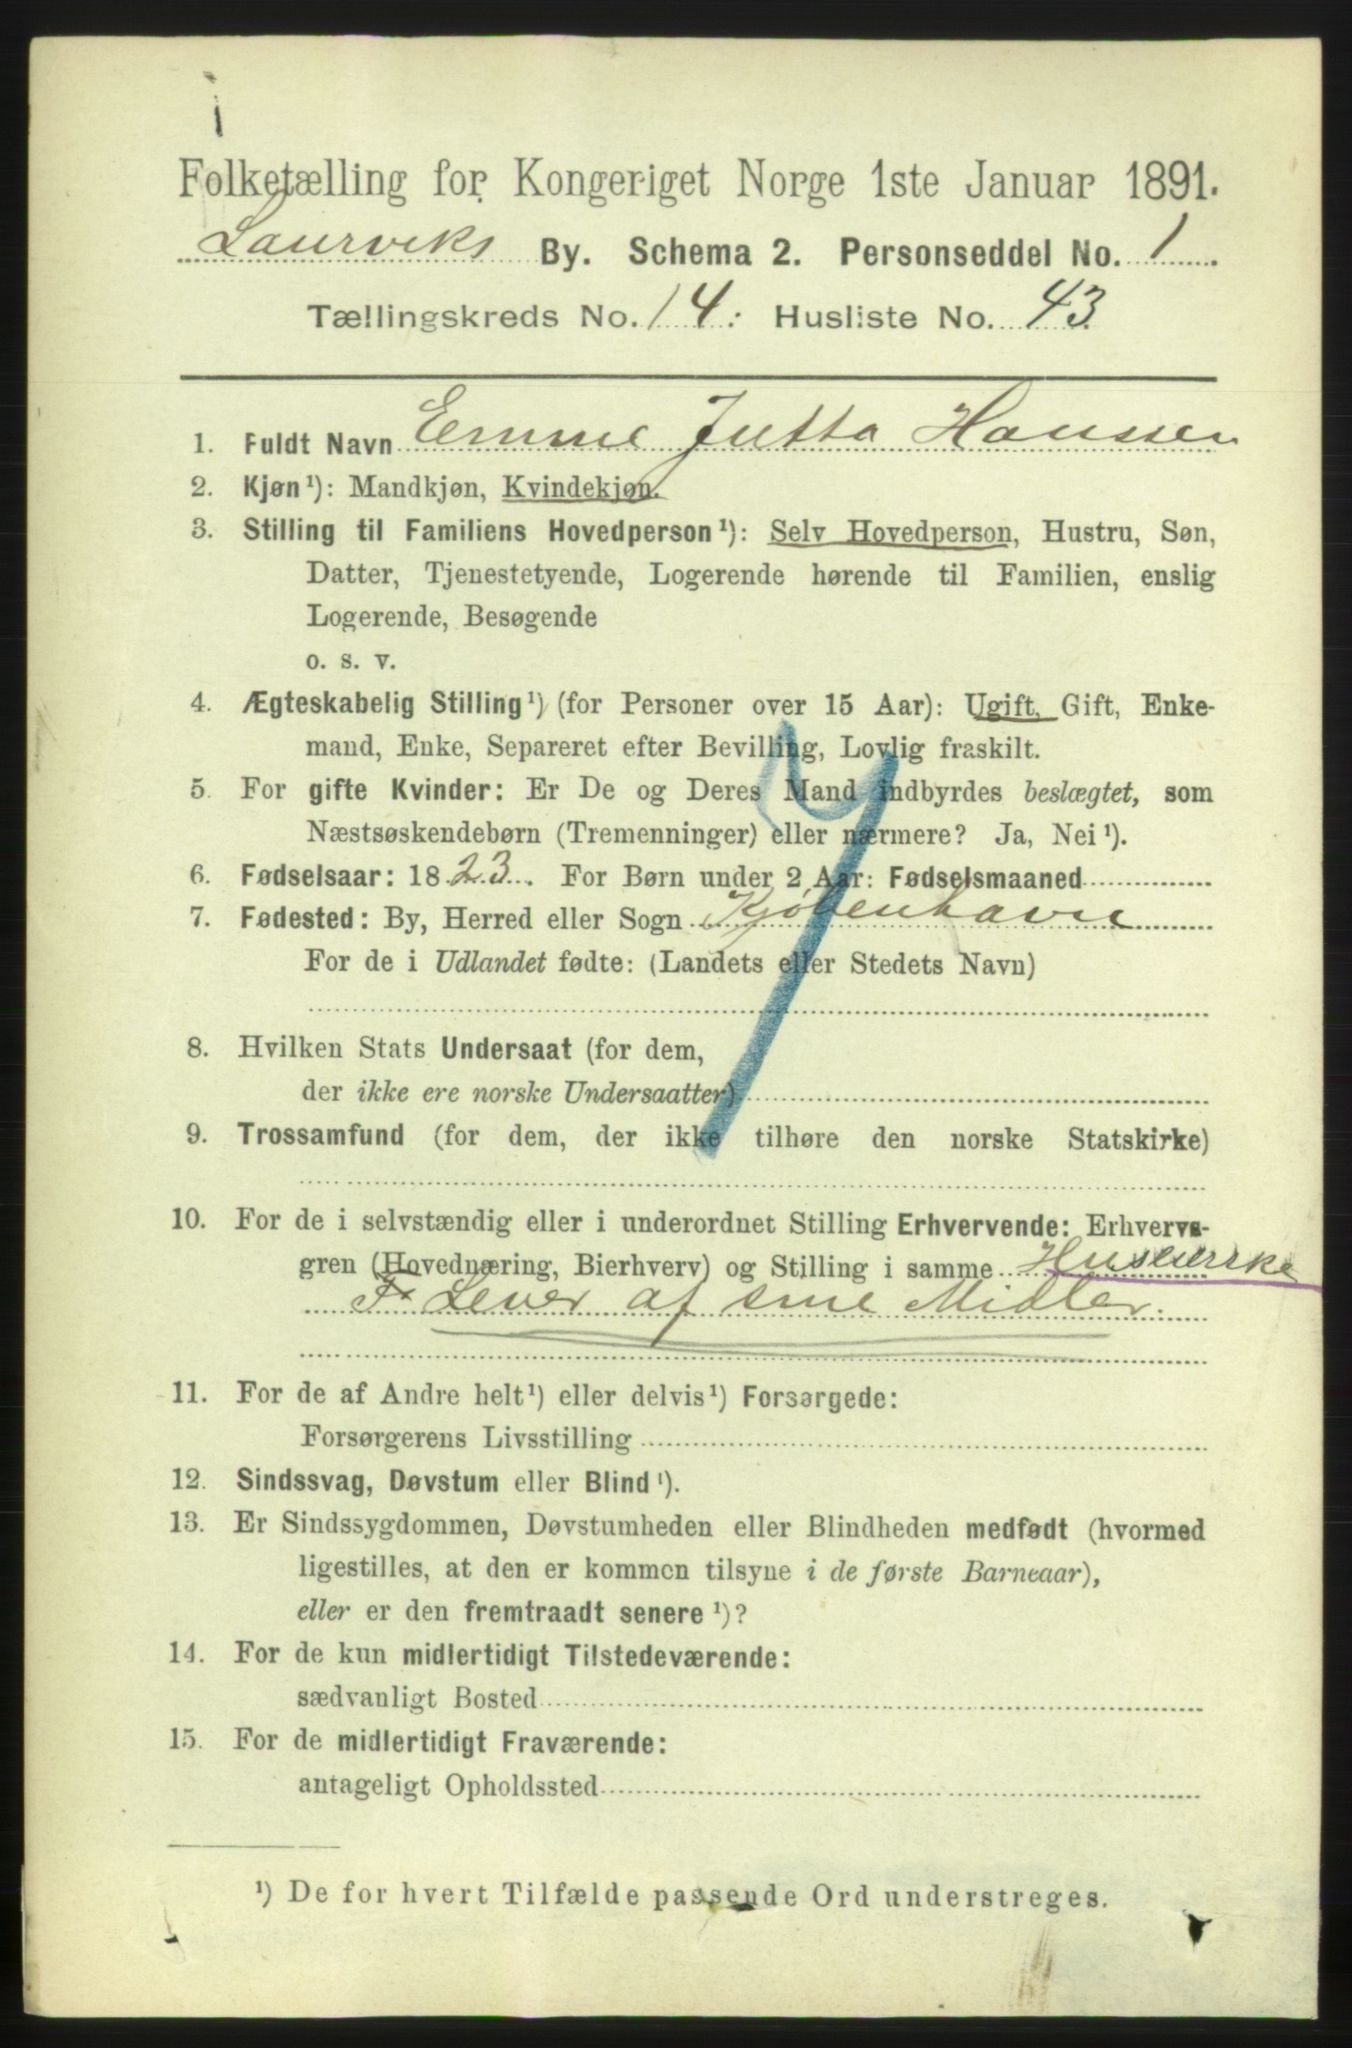 Folketælling for Kongeriget Norge 1ste Januar 1891.
Laurviks By. Schema 2. Personseddel No. 1
Tællingskreds No. 14: Husliste No. 43
1. Fuldt Navn Emme Jutta Hanssen
2. Kjøn¹): Mandkjøn, Kvindekjøn.
3. Stilling til Familiens Hovedperson¹): Selv Hovedperson, Hustru, Søn,
Datter, Tjenestetyende, Logerende hørende til Familien, enslig
Logerende, Besøgende
o. s. v.
4. Ægteskabelig Stilling¹) (for Personer over 15 Aar): Ugift, Gift, Enke-
mand, Enke, Separeret efter Bevilling, Lovlig fraskilt.
5. For gifte Kvinder: Er De og Deres Mand indbyrdes beslægtet, som
Næstsøskendebørn (Tremenninger) eller nærmere? Ja, Nei¹).
6. Fødselsaar: 1823. For Børn under 2 Aar: Fødselsmaaned
7. Fødested: By, Herred eller Sogn Kjøbenhavn
For de i Udlandet fødte: (Landets eller Stedets Navn)
8. Hvilken Stats Undersaat (for dem,
der ikke ere norske Undersaatter)
9. Trossamfund (for dem, der ikke tilhøre den norske Statskirke)
10. For de i selvstændig eller i underordnet Stilling Erhvervende: Erhvervs-
gren (Hovednæring, Bierhverv) og Stilling i samme Huseierske
Fx Lever af sine Midler.
11. For de af Andre helt¹) eller delvis¹) Forsørgede:
Forsørgerens Livsstilling
12. Sindssvag, Døvstum eller Blind¹).
13. Er Sindssygdommen, Døvstumheden eller Blindheden medfødt (hvormed
ligestilles, at den er kommen tilsyne i de første Barneaar),
eller er den fremtraadt senere¹)?
14. For de kun midlertidigt Tilstedeværende:
sædvanligt Bosted
15. For de midlertidigt Fraværende:
antageligt Opholdssted
¹) De for hvert Tilfælde passende Ord understreges.